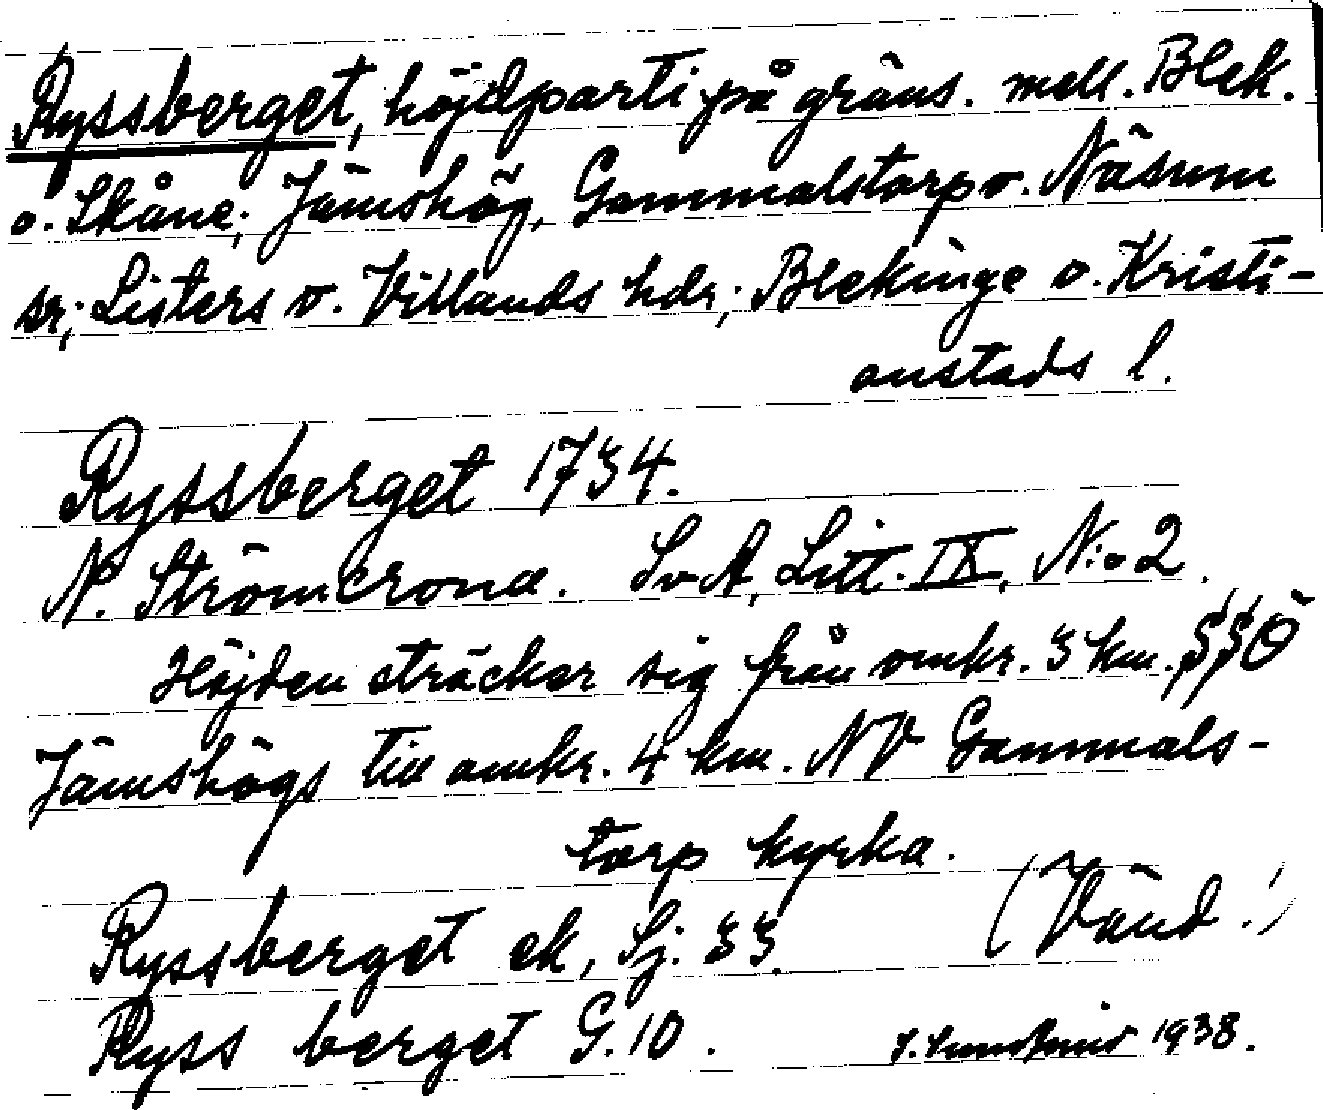 Ryssberget, höjdparti på gräns. mell. Blek.
o. Skåne; Jämshög, Gammalstorp o. Näsum
sr; Listers o. Villands hdr; Blekinge o. Kristi-
anstads l.
Ryssberget 1734.
N. Strömcrona. SvA, Litt. IX, N:o 2.
Höjden sträcker sig från omkr. 3 km. SSÖ
Jämshögs till omkr. 4 km. NV Gammals-
torp kyrka.
Ryssberget ek, Sj. 33. (Vänd!)
Ryss berget G. 10. 1938.